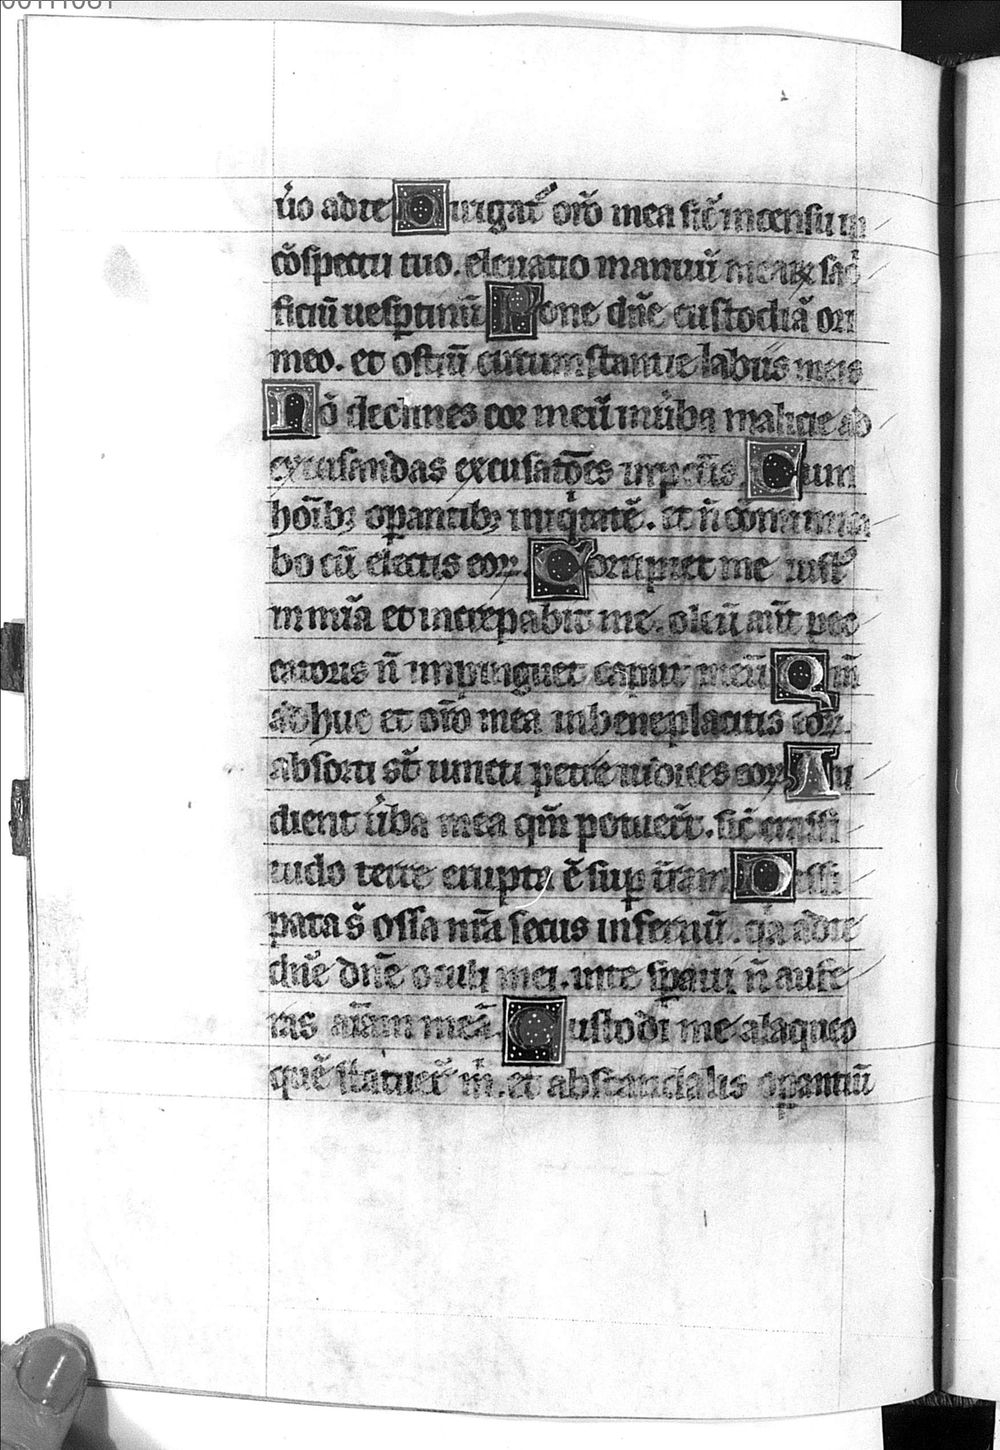 u̾o ad te Dirigat᷑ or̄o mea sic̄ incensū in
cōspectu tuo. eleuatio manuū mearꝝ sac̾
ficiū uesꝑtinū Pone dn̄e custodiā ori
meo. et ostiū circumstantie labiis meis
Nō declines cor meū in u̾ba malicie ad
excusandas excusatōes in pctīs Cum
hoīb; oꝑantib; iniqͥtatē. et n̄ cōmunica
bo cū electis eorꝝ. Corripiet me iustꝰ
in mīa et increpabit me. oleū aūt pec
catoris n̄ impinguet caput meū Qm̄
adhuc et or̄o mea in beneplacitis eorꝝ.
absorti st̄ iuncti petre iudices eorꝝ Au
dient u̾ba mea qm̄ potuer̄t. sic̄ crassi
tudo terre erupta ē suꝑ t̄ram Dissi
pata s̄ ossa nr̄a secus infernū. qͥa ad te
dn̄e dn̄e oculi mei. in te sꝑaui n̄ aufe
ras aīam meā. Custodi me a laqueo
quē statuer̄t m̄. et ab scandalis oꝑantiū